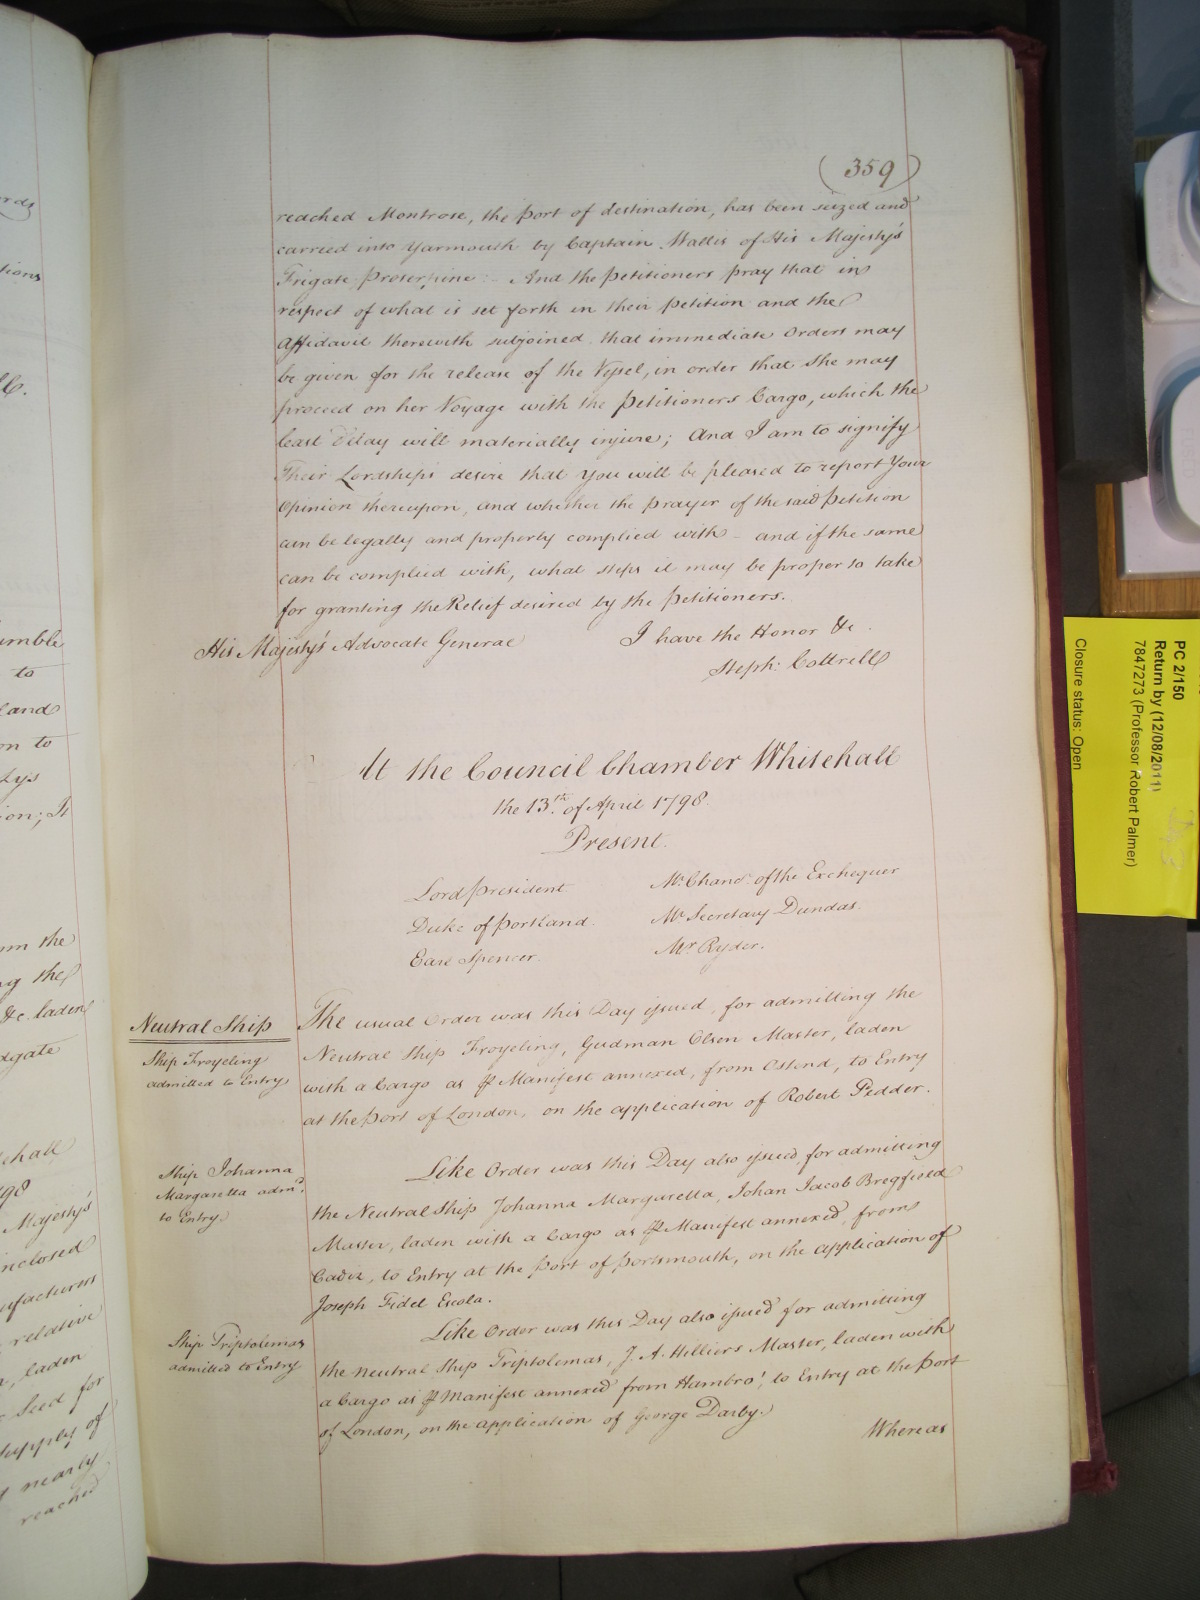 (359)
reached Montrose, the port of destination, has been seized and
carried into Yarmouth by Captain Wallis of His Majesty's
Frigate Proserpine :- And the petitioners pray that in
respect of what is set forth in their petition and the
Affidavit therewith subjoined that immediate Orders may
be given for the release of the Vessel, in order that She may
proceed on her Voyage with the Petitioners Cargo, which the
least delay will materially injure; And I am to signify
Their Lordships desire that You will be pleased to report Your
Opinion thereupon, and whether the prayer of the said petition
can be legally and properly complied with - and if the same
can be complied with, what steps it may be proper to take
for granting the Relief desired by the Petitioners.
His Majesty's Advocate General
I have the Honor &c.
Steph: Cottrell
At the Council Chamber Whitehall
the 13th. of April 1798.
Present.
Lord president
Duke of Portland
Earl Spencer.
Mr. Chancr. of the Exchequer
Mr Secretary Dundas.
Mr Ryder.
Neutral Ship
Ship Froyeling
admitted to Entry
The usual Order was this Day issued, for admitting the
Neutral Ship Froyeling, Gudman Olsen Master, laden
with a Cargo as ⅌ Manifest annexed, from Ostend, to Entry
at the Port of London, on the application of Robert Pedder.
Ship Johanna
Margaretta admd.
to Entry
Like Order was this Day also issued, for admitting
the Neutral Ship Johanna Margaretta, Johan Jacob Bregfield
Master, laden with a Cargo as ⅌ Manifest annexed, from
Cadiz, to Entry at the Port of Portsmouth, on the application of
Joseph Fidel Escola.
Ship Triptolemas
admitted to Entry
Like Order was this Day also issued for admitting
the Neutral Ship Triptolemas, J. A. Hilliers Master, laden with
a Cargo as ⅌ Manifest annexed from Hambro', to Entry at the Port
of London, on the application of George Darby.
Whereas
PC 2/150
Return by (12/08/2011)
7847273 (Professor Robert Palmer)
Closure status: Open